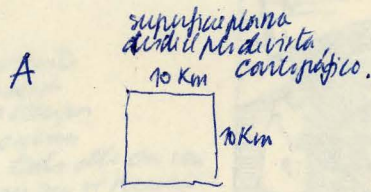 superficie plana
desde el pto de vista
cartográfico.
A
10 Km
10 Km